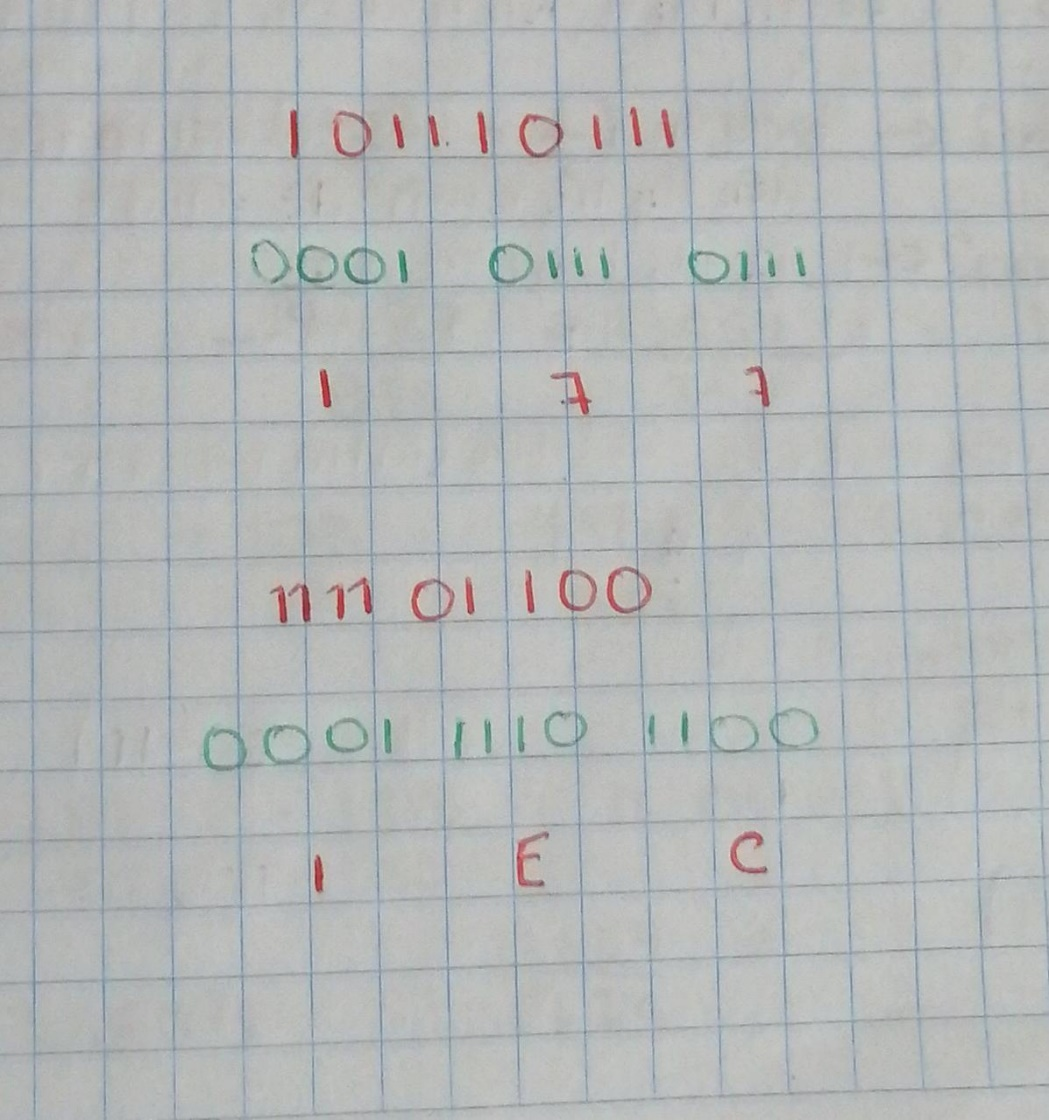 101110111
0001 0111 0111
1 7 7
1111 01 100
0001 1110 1100
1 E C